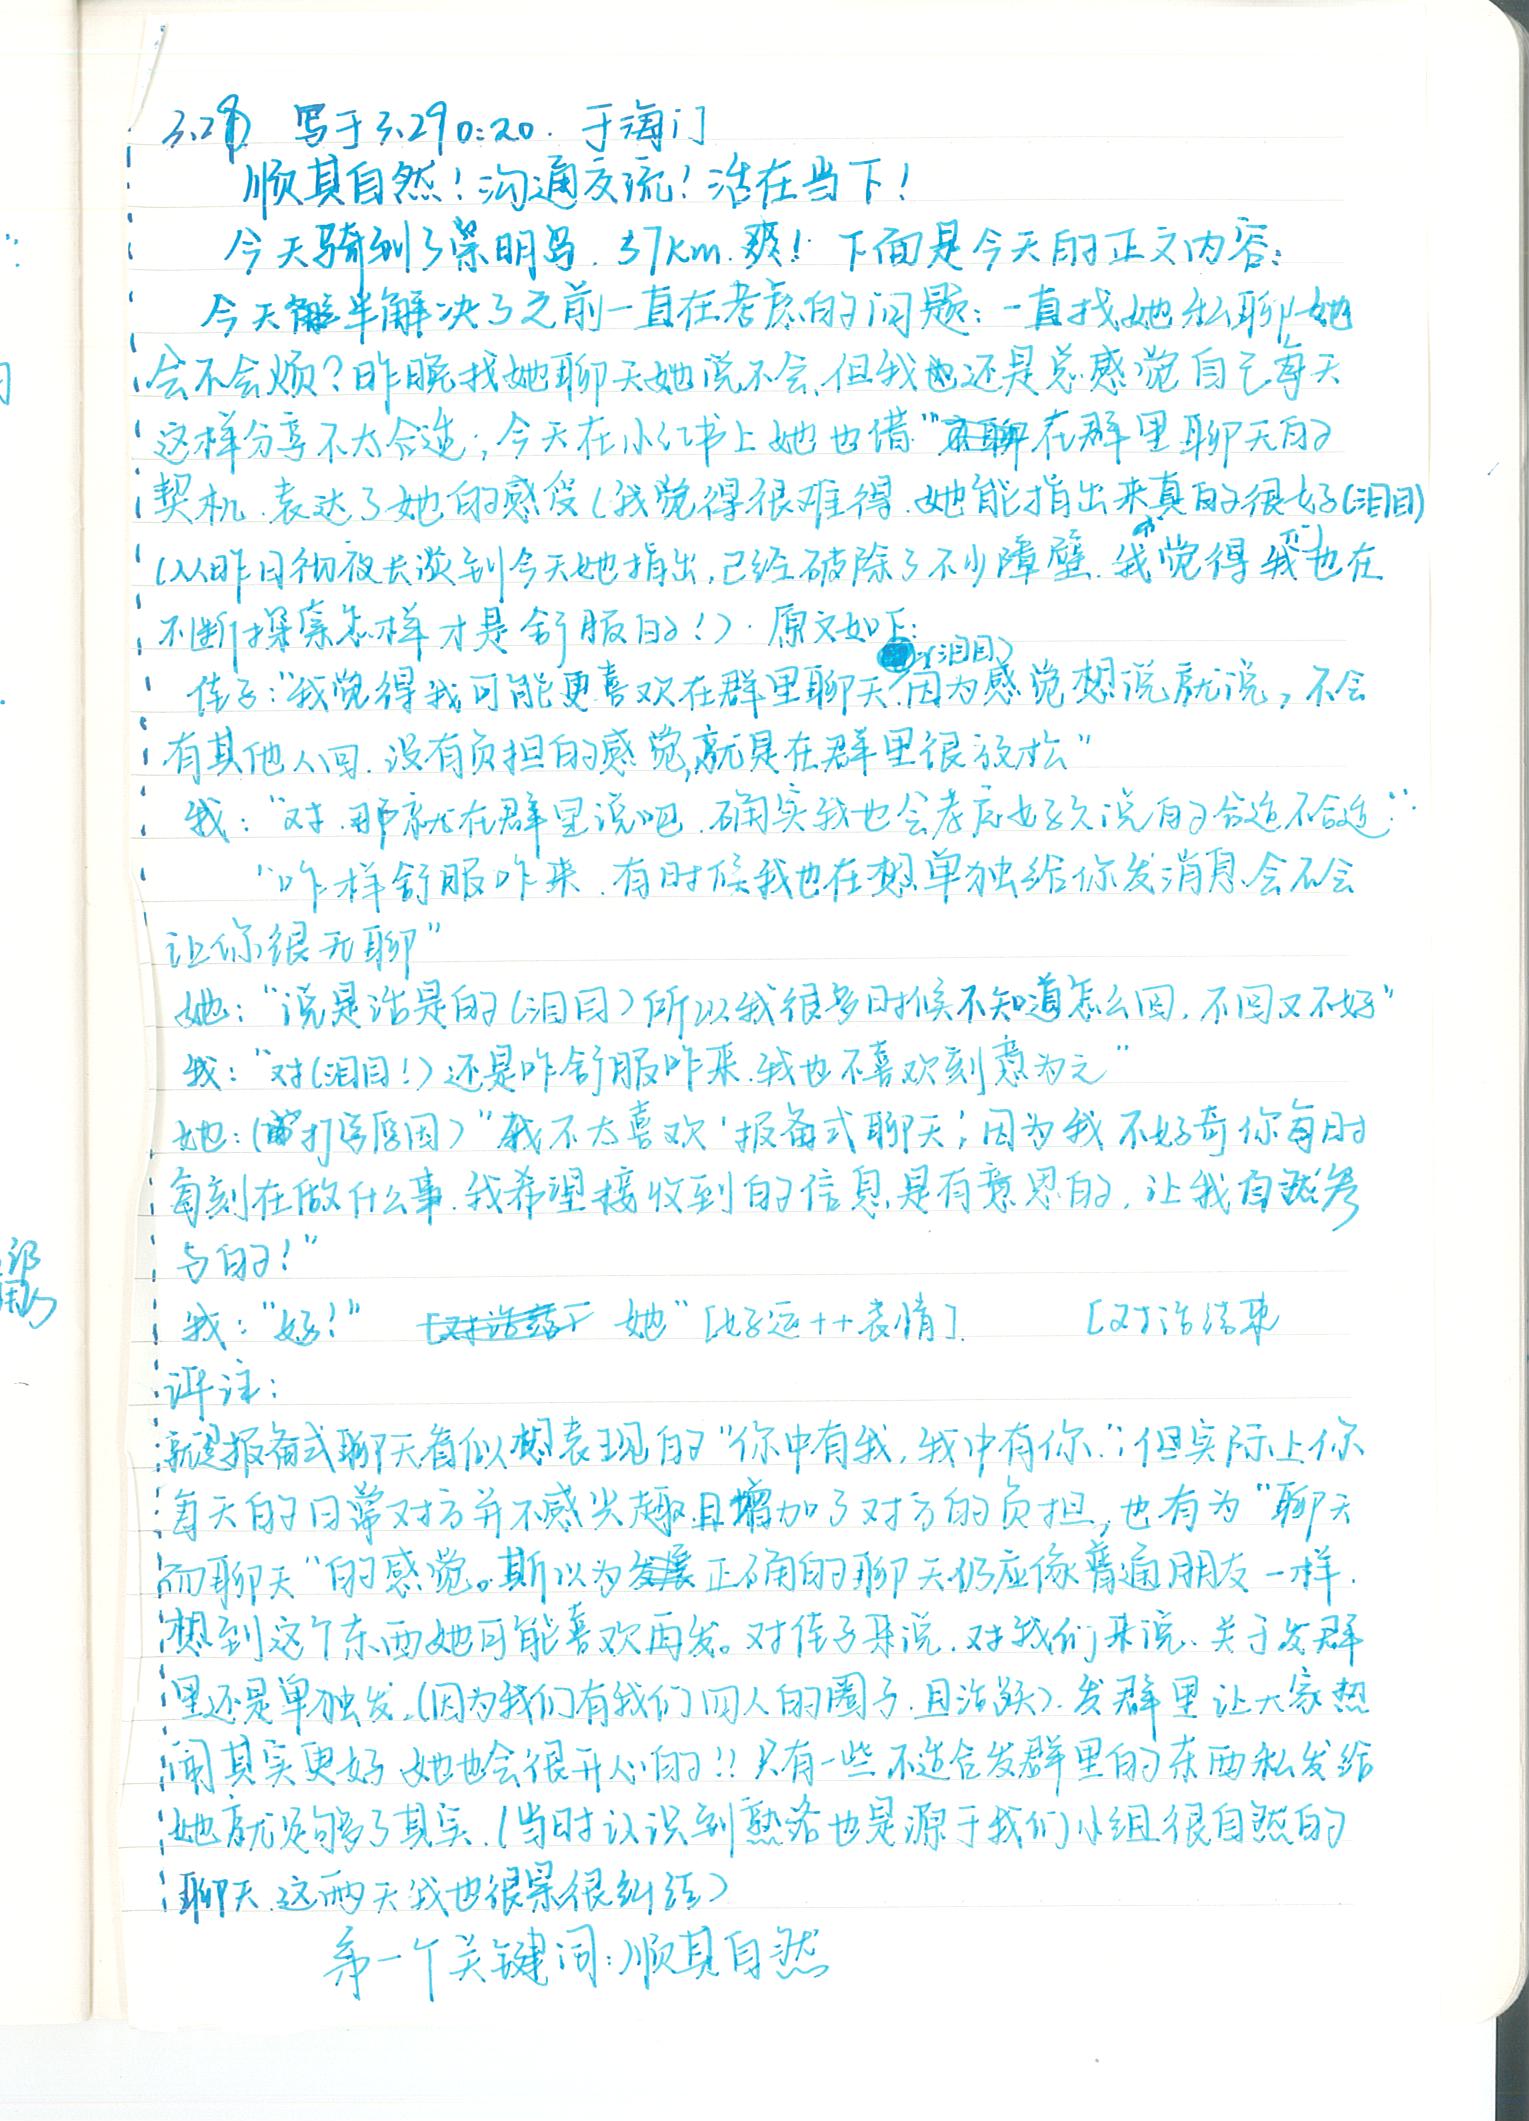 3.28 写于3.29 0:20. 于海门
顺其自然！沟通交流！活在当下！
今天骑到了崇明岛. 37km. 爽！下面是今天的正文内容：
今天解半解决了之前一直在考虑的问题：一直找她私聊她
会不会烦？昨晚找她聊天她说不会, 但我也还是总感觉自己每天
这样分享不太合适；今天在小红书上她也借“在群里聊天的
契机. 表达了她的感受(我觉得很难得. 她能指出来真的很好(泪目)
(从昨日彻夜长谈到今天她指出, 已经破除了不少障壁. 我觉得我们也在
不断探索怎样才是舒服的！). 原文如下：
佳子：“我觉得我可能更喜欢在群里聊天(泪目)因为感觉想说就说, 不会
有其他人回. 没有负担的感觉, 就是在群里很放松”
我：“对. 那就在群里说吧. 确实我也会考虑好久说的合适不合适”.
“咋样舒服咋来. 有时候我也在想单独给你发消息会不会
让你很无聊”
她：“说是话是的(泪目)所以我很多时候不知道怎么回, 不回又不好”
我：“对(泪目！)还是咋舒服咋来. 我也不喜欢刻意为之”
她：(打字原因)“我不太喜欢‘报备式聊天’, 因为我不好奇你每时
每刻在做什么事. 我希望接收到的信息是有意思的, 让我自然参
与的！”
我：“好！” 她“[好运++表情]. [对话结束
评注：
就是报备式聊天看似想表现的“你中有我, 我中有你”；但实际上你
每天的日常对方并不感兴趣且增加了对方的负担, 也有为“聊天
而聊天”的感觉。斯以为正确的聊天仍应像普通朋友一样.
想到这个东西她可能喜欢再发。对佳子来说. 对我们来说. 关于发群
里还是单独发. (因为我们有我们四人的圈子. 且活跃). 发群里让大家热
闹其实更好 她也会很开心的！！只有一些不适合发群里的东西私发给
她就足够了其实. (当时认识到熟络也是源于我们小组很自然的
聊天 这两天我也很累很纠结)
第一个关键词：顺其自然